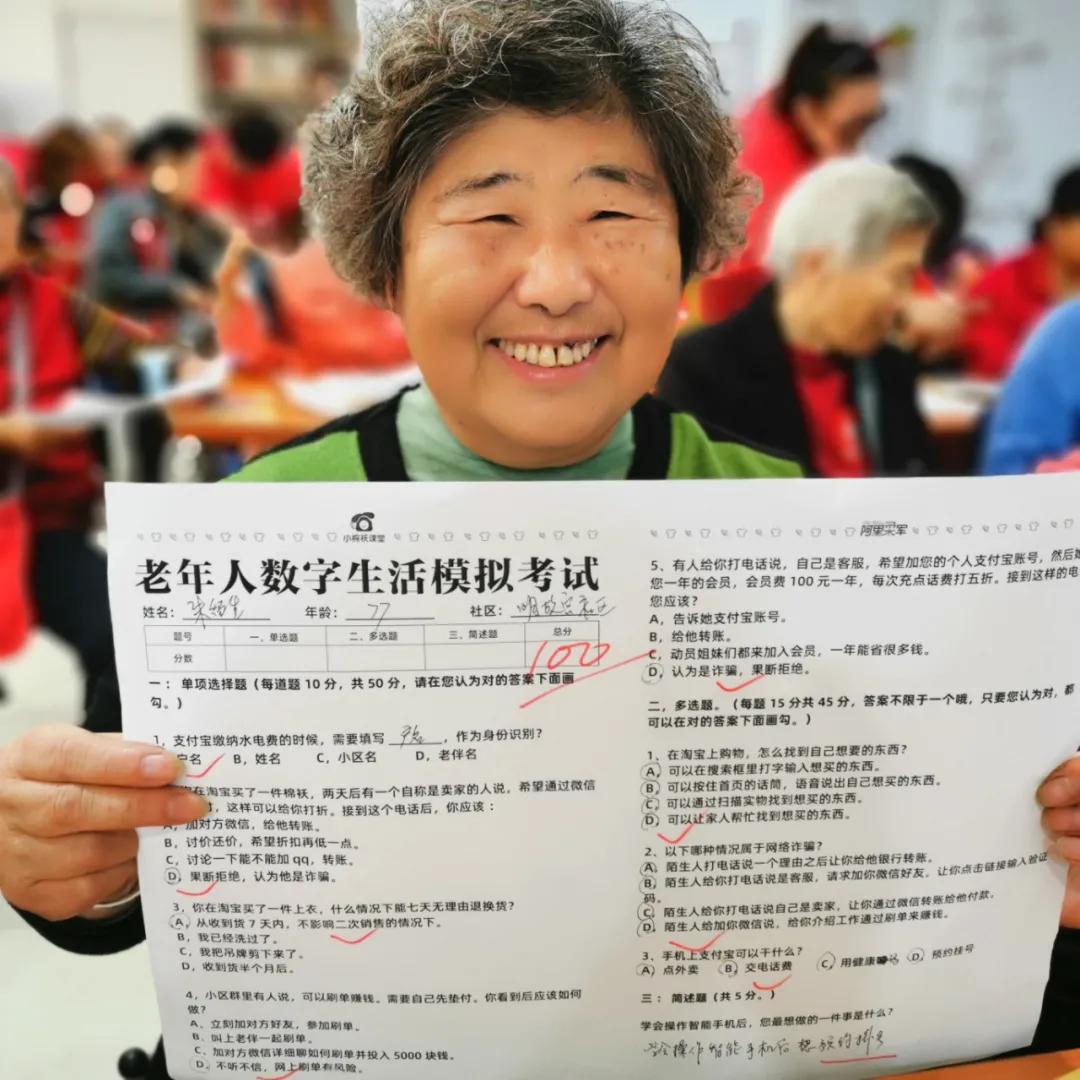 小棉袄课堂
老年人数字生活模拟考试
姓名： 年龄：77 社区：
题号 一、单选题 二、多选题 三、简述题 总分
分数 100
一：单项选择题（每道题 10 分，共 50 分，请在您认为对的答案下面画
勾。）
1，支付宝缴纳水电费的时候，需要填写 ，作为身份识别？
户名 B，姓名 C，小区名 D，老伴名
在淘宝买了一件棉袄，两天后有一个自称是卖家的人说，希望通过微信
，这样可以给你打折。接到这个电话后，你应该：
A，加对方微信，给他转账。
B，讨价还价，希望折扣再低一点。
C，讨论一下能不能加 qq，转账。
D，果断拒绝，认为他是诈骗。
3，你在淘宝买了一件上衣，什么情况下能七天无理由退换货？
A，从收到货 7 天内，不影响二次销售的情况下。
B，我已经洗过了。
C，我把吊牌剪下来了。
D，收到货半个月后。
4，小区群里有人说，可以刷单赚钱。需要自己先垫付。你看到后应该如何
做？
A、立刻加对方好友，参加刷单。
B、叫上老伴一起刷单。
C、加对方微信详细聊如何刷单并投入 5000 块钱。
D、不听不信，网上刷单有风险。
5，有人给你打电话说，自己是客服，希望加您的个人支付宝账号，然后
您一年的会员，会员费 100 元一年，每次充点话费打五折。接到这样的电
您应该？
A，告诉她支付宝账号。
B，给他转账。
C，动员姐妹们都来加入会员，一年能省很多钱。
D，认为是诈骗，果断拒绝。
二，多选题。（每题 15 分共 45 分，答案不限于一个哦，只要您认为对，都
可以在对的答案下面画勾。）
1，在淘宝上购物，怎么找到自己想要的东西？
A，可以在搜索框里打字输入想买的东西。
B，可以按住首页的话筒，语音说出自己想买的东西。
C，可以通过扫描实物找到想买的东西。
D，可以让家人帮忙找到想买的东西。
2，以下哪种情况属于网络诈骗？
A，陌生人打电话说一个理由之后让你给他银行转账。
B，陌生人给你打电话说是客服，请求加你微信好友，让你点击链接输入验证
码。
C，陌生人给你打电话说自己是卖家，让你通过微信转账给他付款。
D，陌生人给加你微信说，给你介绍工作通过刷单来赚钱。
3，手机上支付宝可以干什么？
A）点外卖 B，交电话费 C，用健康 D）预约挂号
三：简述题（共 5 分。）
学会操作智能手机后，您最想做的一件事是什么？
学会操作智能手机后想预约挂号